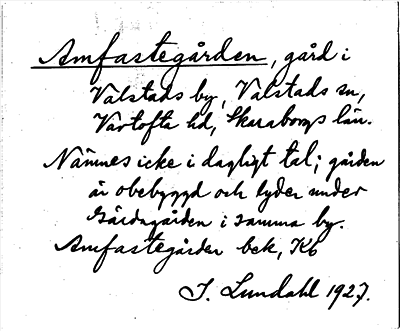 Amfastegården, gård i
Valstads by, Valstads sn,
Vartofta hd, Skaraborgs län.
Nämnes icke i dagligt tal; gården
är obebyggd och lyder under
Gärdsgården i samma by.
Amfastegården bek, Kb
J. Lundahl 1927.